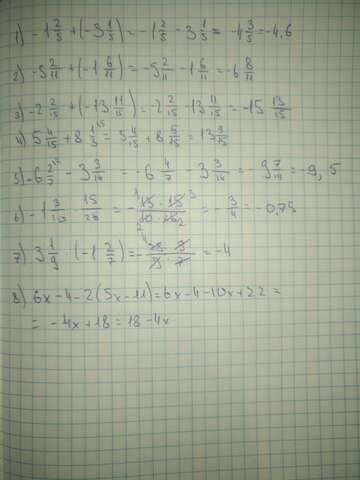 1) -1 2/5 + (-3 1/5) = -1 2/5 - 3 1/5 = -4 3/5 = -4,6
2) -5 2/11 + (-1 6/11) = -5 2/11 - 1 6/11 = -6 8/11
3) -2 2/15 + (-13 11/15) = -2 2/15 - 13 11/15 = -15 13/15
4) 5 4/15 + 8 1/3 = 5 4/15 + 8 5/15 = 13 9/15
5) -6 2/7 - 3 3/14 = -6 4/7 - 3 3/14 = -9 7/14 = -9,5
6) -1 3/10 · 15/26 = - 13·15/10·26 = - 3/4 = -0,75
7) 3 1/9 (-1 2/7) = - 28·9/9·7 = -4
8) 6x-4-2(5x-11)=6x-4-10x+22=
= -4x+18=18-4x